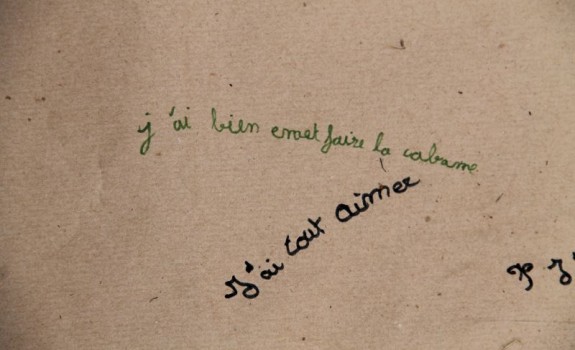 j'ai bien emet faire la cabame
J'ai tout aimer